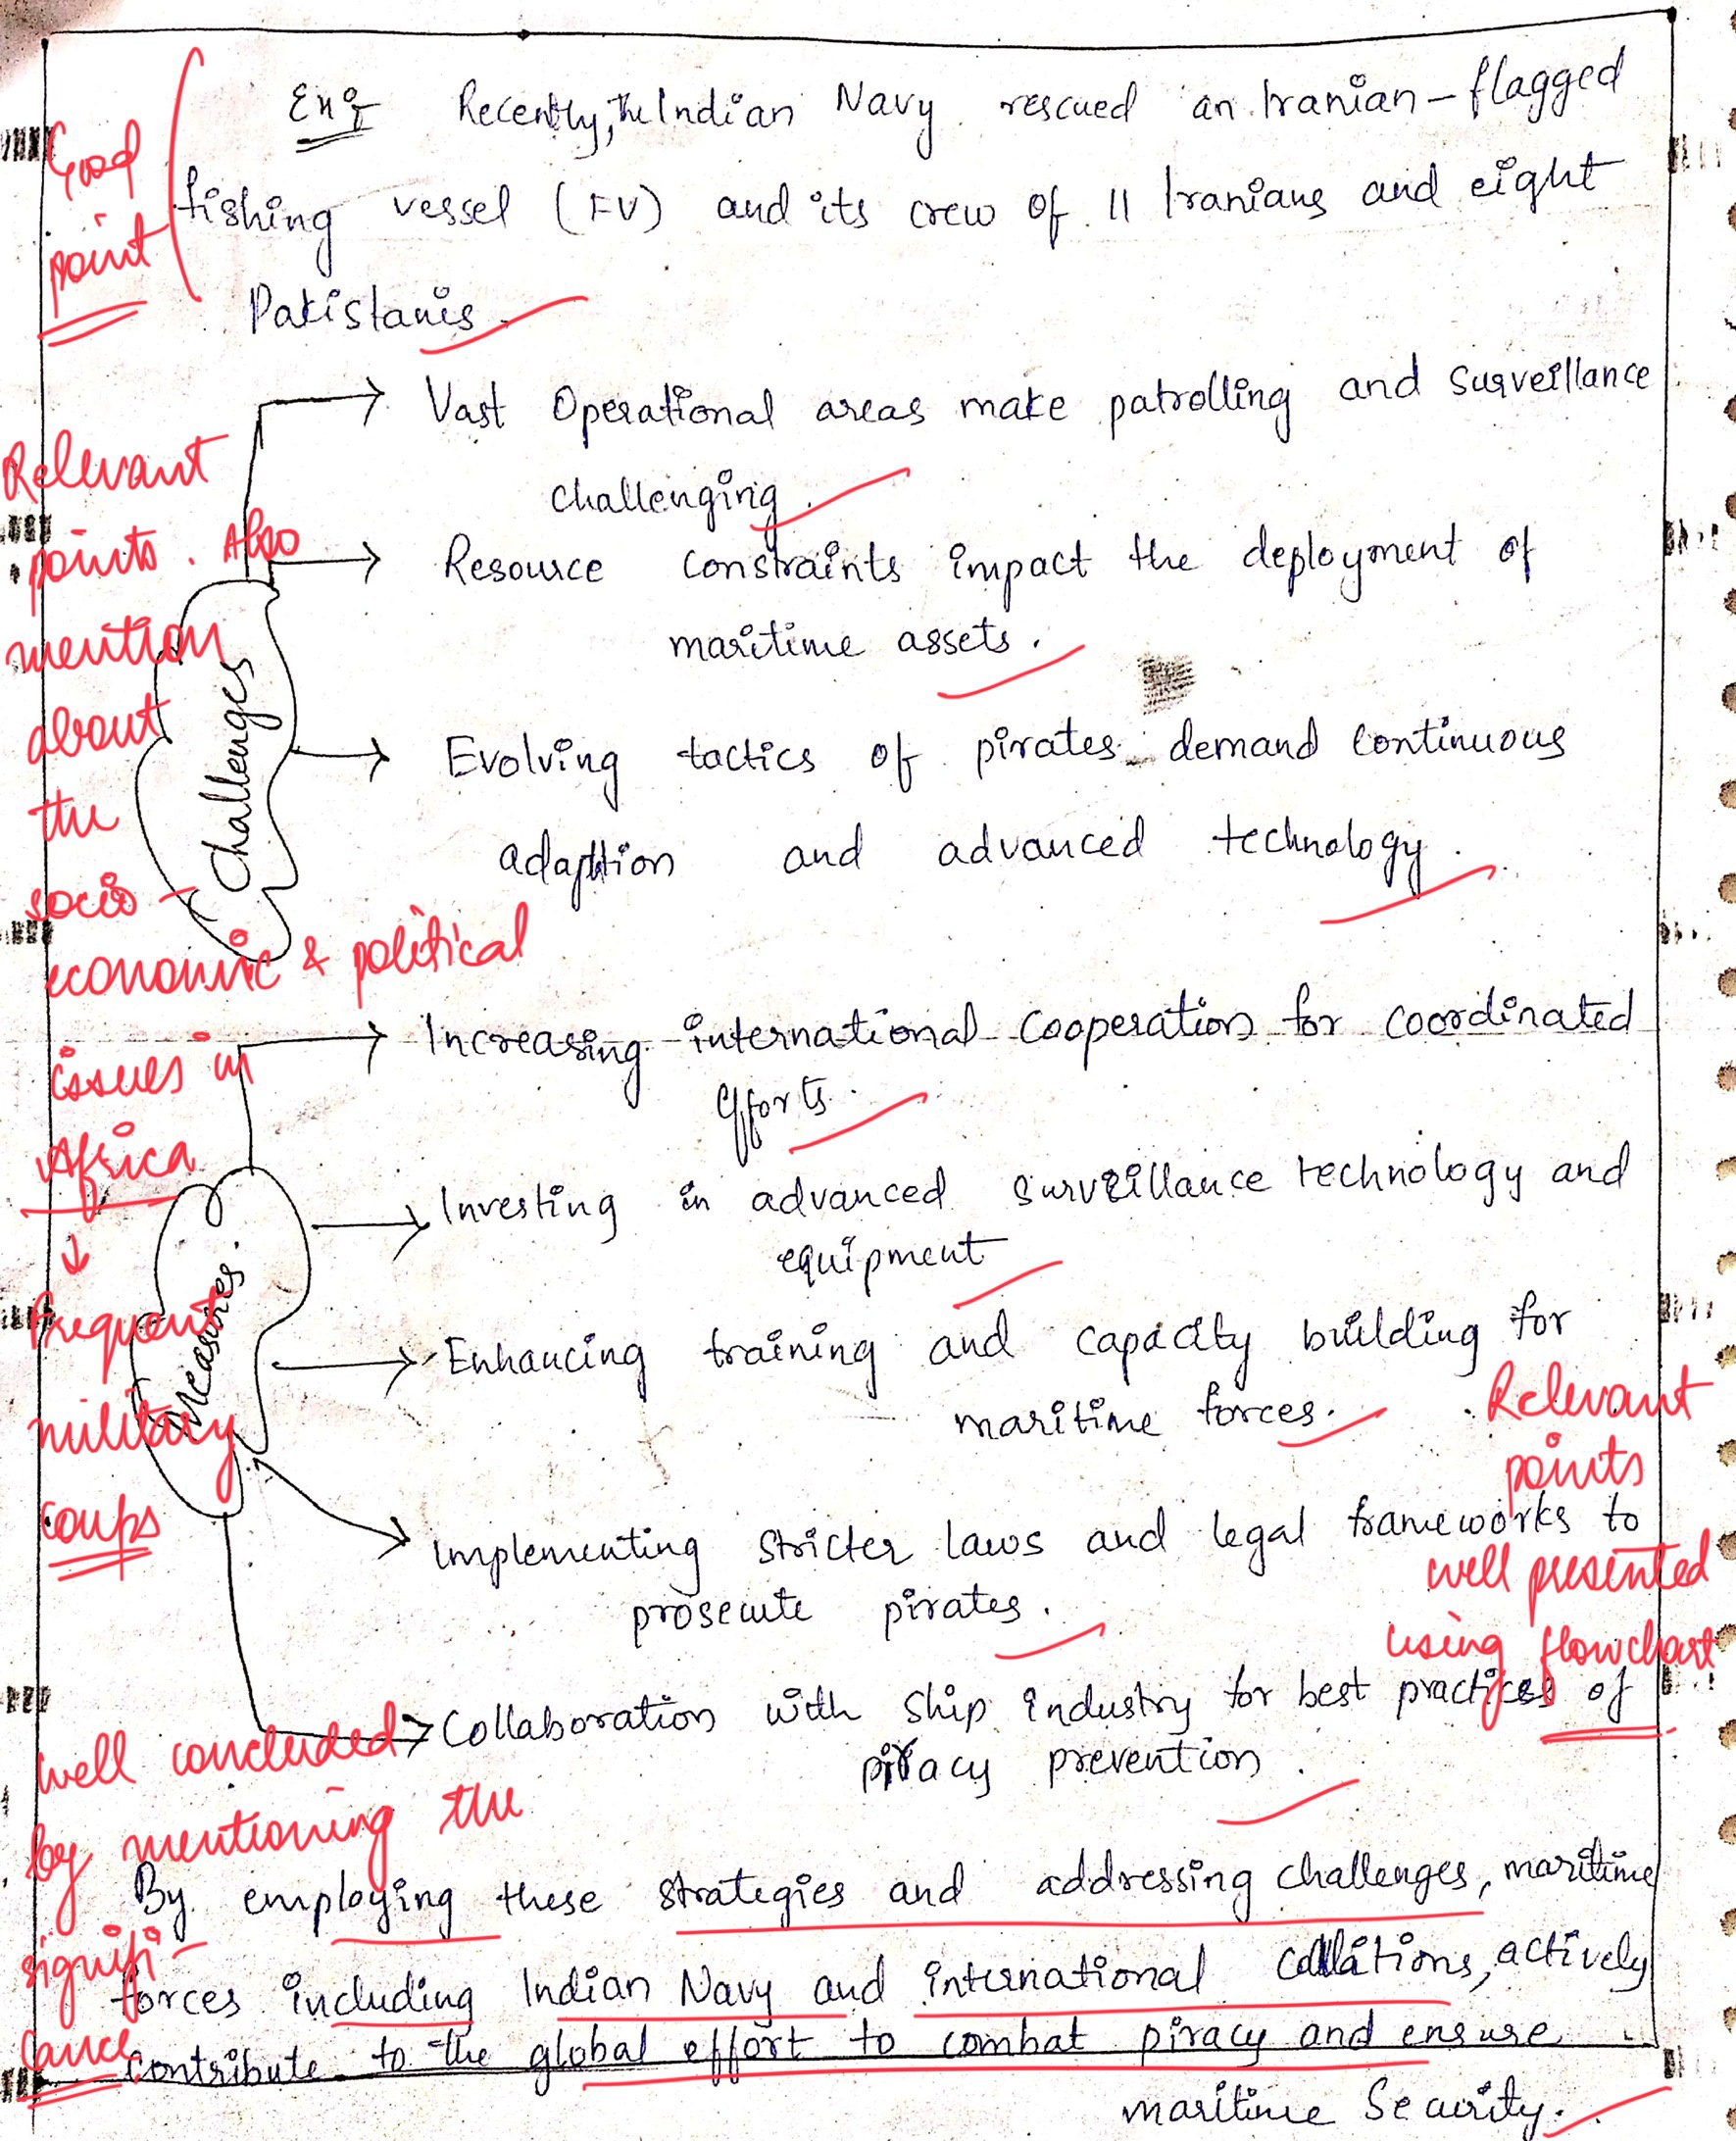 Ex: Recently, the Indian Navy rescued an Iranian-flagged
fishing vessel (FV) and its crew of 11 Iranians and eight
Pakistanis
Good
point
Vast Operational areas make patrolling and Surveillance
challenging.
Resource constraints impact the deployment of
maritime assets.
Challenges
Evolving tactics of pirates demand continuous
adaption and advanced technology.
Relevant
points. Also
mention
about
the
socio-
economic & political
issues in
Africa
↓
frequent
military
coups
Increasing international cooperation for coordinated
efforts.
Investing in advanced surveillance technology and
equipment
Measures.
Enhancing training and capacity building for
maritime forces.
Implementing stricter laws and legal frameworks to
prosecute pirates.
Collaboration with ship industry for best practices of
piracy prevention.
Relevant
points
well presented
using flowchart
well concluded
by mentioning the
signifi-
cance
By employing these strategies and addressing challenges, maritime
forces including Indian Navy and international, actively
contribute to the global effort to combat piracy and ensure
maritime Security.